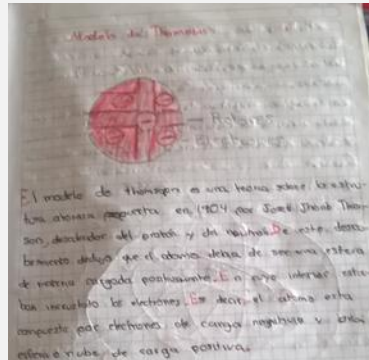 Modelo de Thomson
Protones
electrones
El modelo de thomson es una teoria sobre la estruc-
tura atomica propuesta en 1904 por Thom-
son, descubridor del proton y del De este descu-
brimiento dedujo que el atomo debia de ser una esfera
de materia cargada positivamente. En cuyo interior esta-
ban los electrones. Es decir, el atomo esta
compuesto por electrones de carga negativa y
esfera o nube de carga positiva.